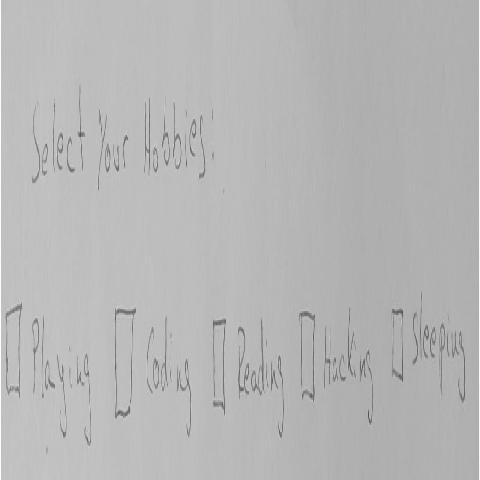 Select Your Hobbies:
Playing Coding Reading Hacking Sleeping